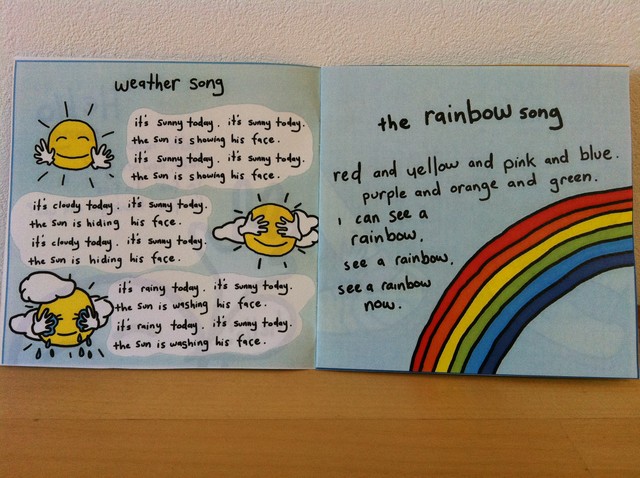 weather song
it's sunny today. it's sunny today.
the sun is showing his face.
it's sunny today. it's sunny today.
the sun is showing his face.
it's cloudy today. it's sunny today.
the sun is hiding his face.
it's cloudy today. it's sunny today.
the sun is hiding his face.
it's rainy today. it's sunny today.
the sun is washing his face.
it's rainy today. it's sunny today.
the sun is washing his face.
the rainbow song
red and yellow and pink and blue.
purple and orange and green.
i can see a
rainbow.
see a rainbow.
see a rainbow
now.